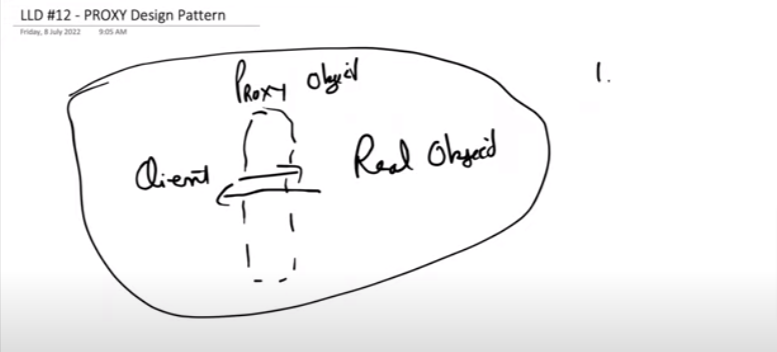 LLD #12 - PROXY Design Pattern
Friday, 8 July 2022 9:05 AM
Proxy Object
1.
Client
Real Object